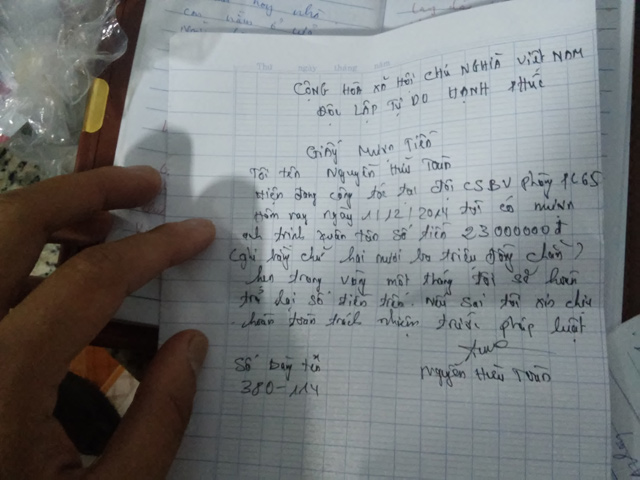 Thứ ngày tháng năm
CỘNG HÒA XÃ HỘI CHỦ NGHĨA VIỆT NAM
ĐỘC LẬP TỰ DO HẠNH PHÚC
GIẤY MƯỢN TIỀN
Tôi tên Nguyễn Hữu Toàn
Hiện đang công tác tại đội CSBV phòng PC65
Hôm nay ngày 1/12/2014 tôi có mượn
anh Trịnh Xuân Tôn số tiền 23000000đ
(ghi bằng chữ hai mươi ba triệu đồng chẵn)
hẹn trong vòng một tháng tôi sẽ hoàn
trả lại số tiền trên. Nếu sai tôi xin chịu
hoàn toàn trách nhiệm trước pháp luật
Nguyễn Hữu Toàn
Số
380-114